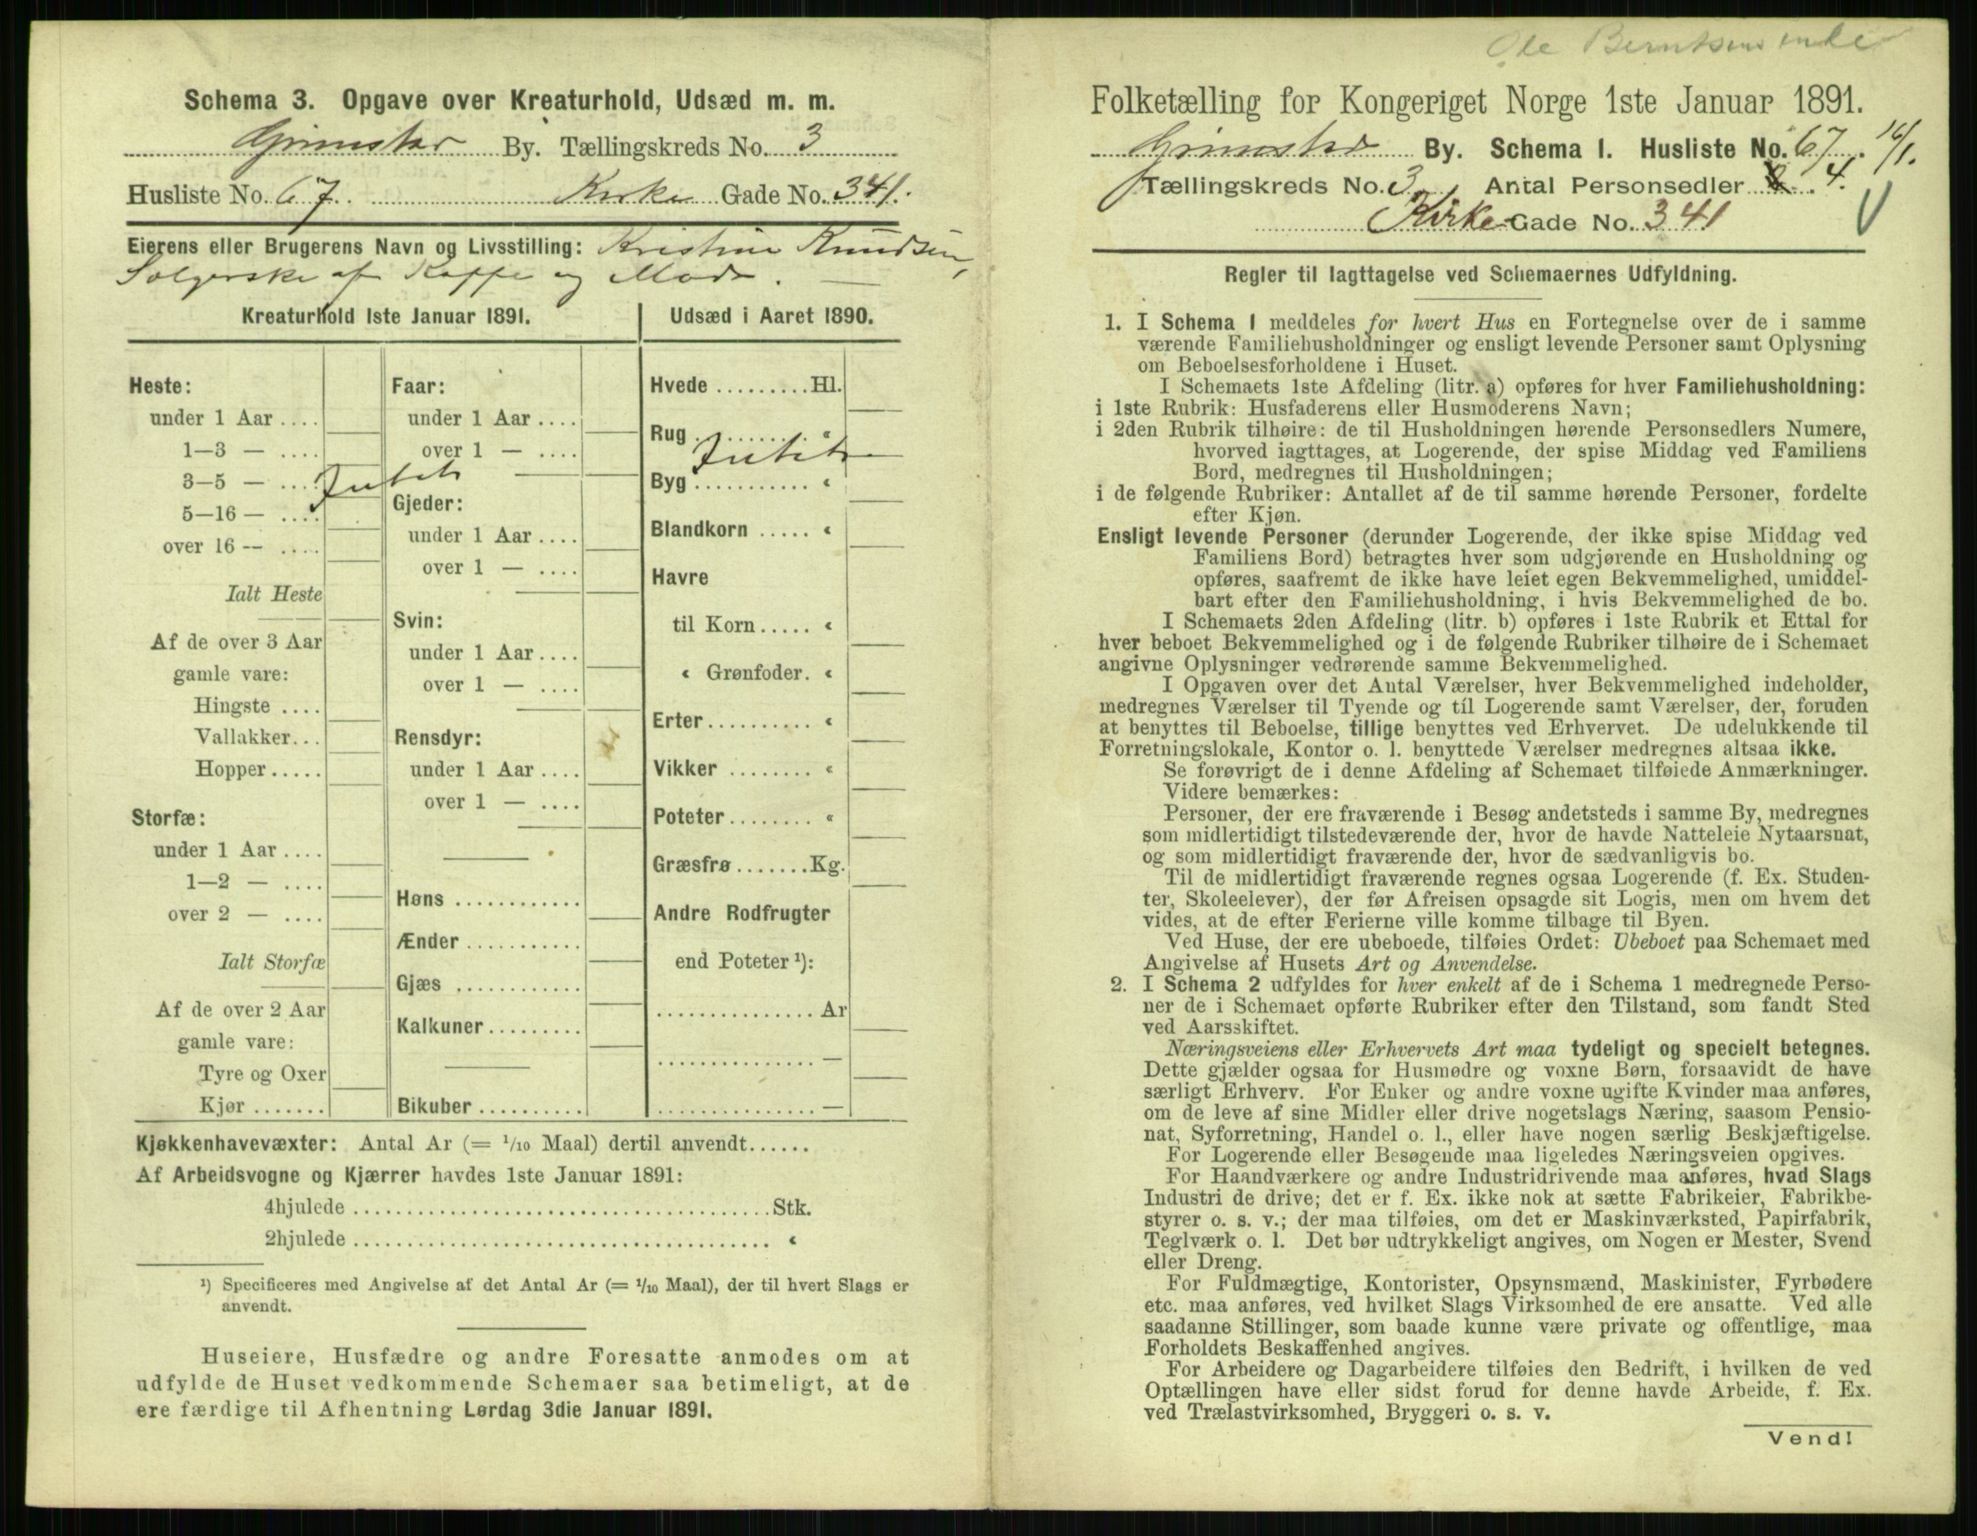 Schema 3. Opgave over Kreaturhold, Udsæd m. m.
Grimstad By. Tællingskreds No. 3
Husliste No. 67. Kirke Gade No. 341.
Eierens eller Brugerens Navn og Livsstilling: Kristine Knudsen,
Sælgerske af Kaffe og Mad.
Kreaturhold 1ste Januar 1891. Udsæd i Aaret 1890.
Heste:
under 1 Aar ....
1—3 — ....
3—5 — ....
Intet
5—16 — ....
over 16 — ....
Ialt Heste
Af de over 3 Aar
gamle vare:
Hingste ....
Vallakker...
Hopper.....
Storfæ:
under 1 Aar ....
1—2 — ....
over 2 — ....
Ialt Storfæ
Af de over 2 Aar
gamle vare:
Tyre og Oxer
Kjør .......
Faar:
under 1 Aar ....
over 1 — ....
Gjeder:
under 1 Aar ....
over 1 — ....
Svin:
under 1 Aar ....
over 1 — ....
Rensdyr:
under 1 Aar ....
over 1 — ....
Høns ............
Ænder ...........
Gjæs ............
Kalkuner.........
Bikuber ..........
Hvede .........Hl.
Rug ........... «
Intet
Byg ........... «
Blandkorn ..... «
Havre
til Korn..... «
« Grønfoder. «
Erter.......... «
Vikker ........ «
Poteter........ «
Græsfrø .......Kg.
Andre Rodfrugter
end Poteter ¹):
............... Ar
............... —
............... —
Kjøkkenhavevæxter: Antal Ar (= 1/10 Maal) dertil anvendt......
Af Arbeidsvogne og Kjærrer havdes 1ste Januar 1891:
4hjulede .......................................Stk.
2hjulede ....................................... «
¹) Specificeres med Angivelse af det Antal Ar (= 1/10 Maal), der til hvert Slags er
anvendt.
Huseiere, Husfædre og andre Foresatte anmodes om at
udfylde de Huset vedkommende Schemaer saa betimeligt, at de
ere færdige til Afhentning Lørdag 3die Januar 1891.
Ole Berntsens enke
Folketælling for Kongeriget Norge 1ste Januar 1891.
Grimstad By. Schema 1. Husliste No. 67. 16/1.
Tællingskreds No. 3 Antal Personsedler 4.
Kirke Gade No. 341
Regler til Iagttagelse ved Schemaernes Udfyldning.
1. I Schema 1 meddeles for hvert Hus en Fortegnelse over de i samme
værende Familiehusholdninger og ensligt levende Personer samt Oplysning
om Beboelsesforholdene i Huset.
I Schemaets 1ste Afdeling (litr. a) opføres for hver Familiehusholdning:
i 1ste Rubrik: Husfaderens eller Husmoderens Navn;
i 2den Rubrik tilhøire: de til Husholdningen hørende Personsedlers Numere,
hvorved iagttages, at Logerende, der spise Middag ved Familiens
Bord, medregnes til Husholdningen;
i de følgende Rubriker: Antallet af de til samme hørende Personer, fordelte
efter Kjøn.
Ensligt levende Personer (derunder Logerende, der ikke spise Middag ved
Familiens Bord) betragtes hver som udgjørende en Husholdning og
opføres, saafremt de ikke have leiet egen Bekvemmelighed, umiddel-
bart efter den Familiehusholdning, i hvis Bekvemmelighed de bo.
I Schemaets 2den Afdeling (litr. b) opføres i 1ste Rubrik et Ettal for
hver beboet Bekvemmelighed og i de følgende Rubriker tilhøire de i Schemaet
angivne Oplysninger vedrørende samme Bekvemmelighed.
I Opgaven over det Antal Værelser, hver Bekvemmelighed indeholder,
medregnes Værelser til Tyende og til Logerende samt Værelser, der, foruden
at benyttes til Beboelse, tillige benyttes ved Erhvervet. De udelukkende til
Forretningslokale, Kontor o. l. benyttede Værelser medregnes altsaa ikke.
Se forøvrigt de i denne Afdeling af Schemaet tilføiede Anmærkninger.
Videre bemærkes:
Personer, der ere fraværende i Besøg andetsteds i samme By, medregnes
som midlertidigt tilstedeværende der, hvor de havde Natteleie Nytaarsnat,
og som midlertidigt fraværende der, hvor de sædvanligvis bo.
Til de midlertidigt fraværende regnes ogsaa Logerende (f. Ex. Studen-
ter, Skoleelever), der før Afreisen opsagde sit Logis, men om hvem det
vides, at de efter Ferierne ville komme tilbage til Byen.
Ved Huse, der ere ubeboede, tilføies Ordet: Ubeboet paa Schemaet med
Angivelse af Husets Art og Anvendelse.
2. I Schema 2 udfyldes for hver enkelt af de i Schema 1 medregnede Perso-
ner de i Schemaet opførte Rubriker efter den Tilstand, som fandt Sted
ved Aarsskiftet.
Næringsveiens eller Erhvervets Art maa tydeligt og specielt betegnes.
Dette gjælder ogsaa for Husmødre og voxne Børn, forsaavidt de have
særligt Erhverv. For Enker og andre voxne ugifte Kvinder maa anføres,
om de leve af sine Midler eller drive nogetslags Næring, saasom Pensio-
nat, Syforretning, Handel o. l., eller have nogen særlig Beskjæftigelse.
For Logerende eller Besøgende maa ligeledes Næringsveien opgives.
For Haandværkere og andre Industridrivende maa anføres, hvad Slags
Industri de drive; det er f. Ex. ikke nok at sætte Fabrikeier, Fabrikbe-
styrer o. s. v.; der maa tilføies, om det er Maskinværksted, Papirfabrik,
Teglværk o. l. Det bør udtrykkeligt angives, om Nogen er Mester, Svend
eller Dreng.
For Fuldmægtige, Kontorister, Opsynsmænd, Maskinister, Fyrbødere
etc. maa anføres, ved hvilket Slags Virksomhed de ere ansatte. Ved alle
saadanne Stillinger, som baade kunne være private og offentlige, maa
Forholdets Beskaffenhed angives.
For Arbeidere og Dagarbeidere tilføies den Bedrift, i hvilken de ved
Optællingen have eller sidst forud for denne havde Arbeide, f. Ex.
ved Trælastvirksomhed, Bryggeri o. s. v.
Vend!